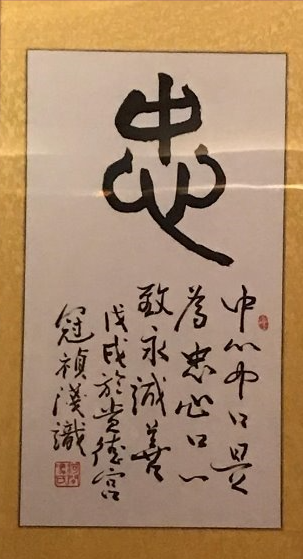 忠
中心口是
為忠心口一
致永誠善
戊戌於德宮
冠禎漢識